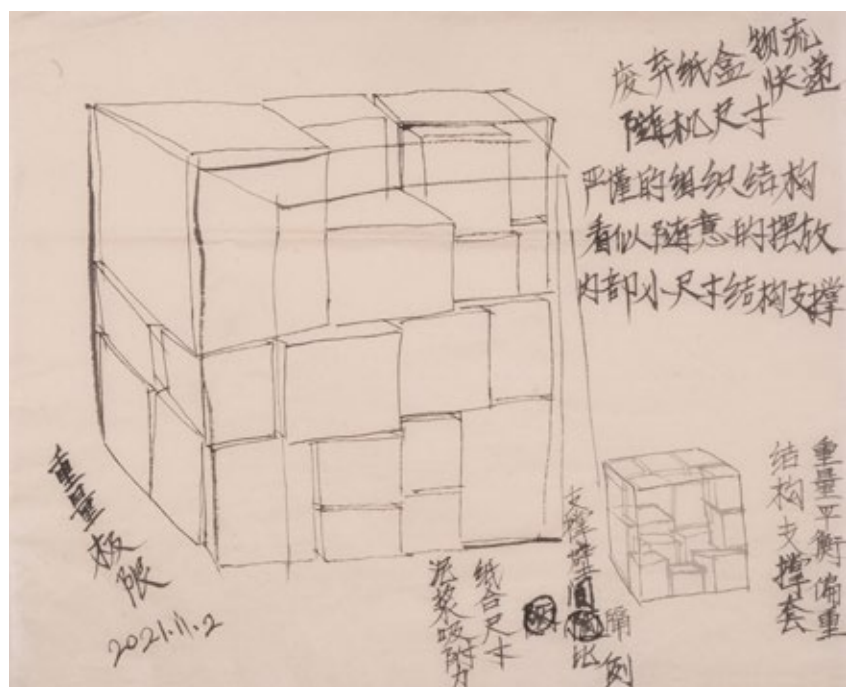 废弃纸盒 物流
快递
随机尺寸
严谨的组织结构
看似随意的摆放
内部小尺寸结构支撑
重量极限
2021.11.2
纸合尺寸
泥浆吸附力
支撑
间隔比例
重量平衡偏重
结构支撑套